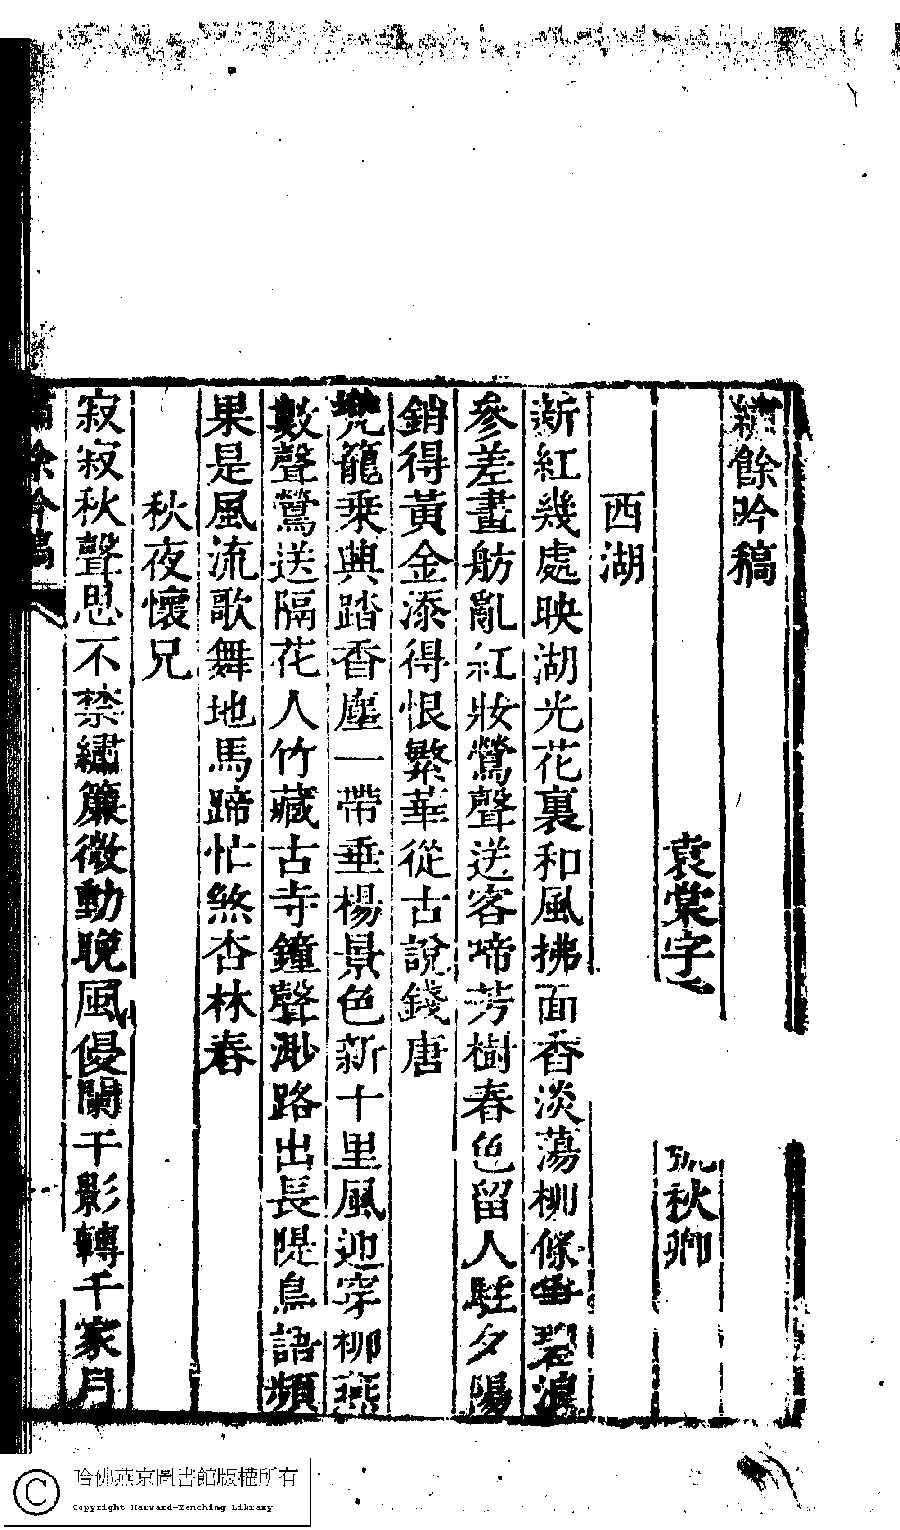 繡餘吟稿
袁棠字 秋卿
西湖
新紅幾處映湖光花裏和風拂面香淡蕩柳條 碧浪
參差畫舫亂紅妝鶯聲送客啼芳樹春色留人駐夕陽
銷得黃金添得恨繁華從古說錢唐
籠乘興踏香塵一帶垂楊景色新十里風迎穿柳燕
數聲鶯送隔花人竹藏古寺鐘聲渺路出長隄鳥語頻
果是風流歌舞地馬蹄忙煞杏林春
秋夜懷兄
寂寂秋聲思不禁繡簾微動晚風侵闌干影轉千家月
餘吟稿
哈佛燕京圖書館版權所有
Copyright Harvard-Yenching Library